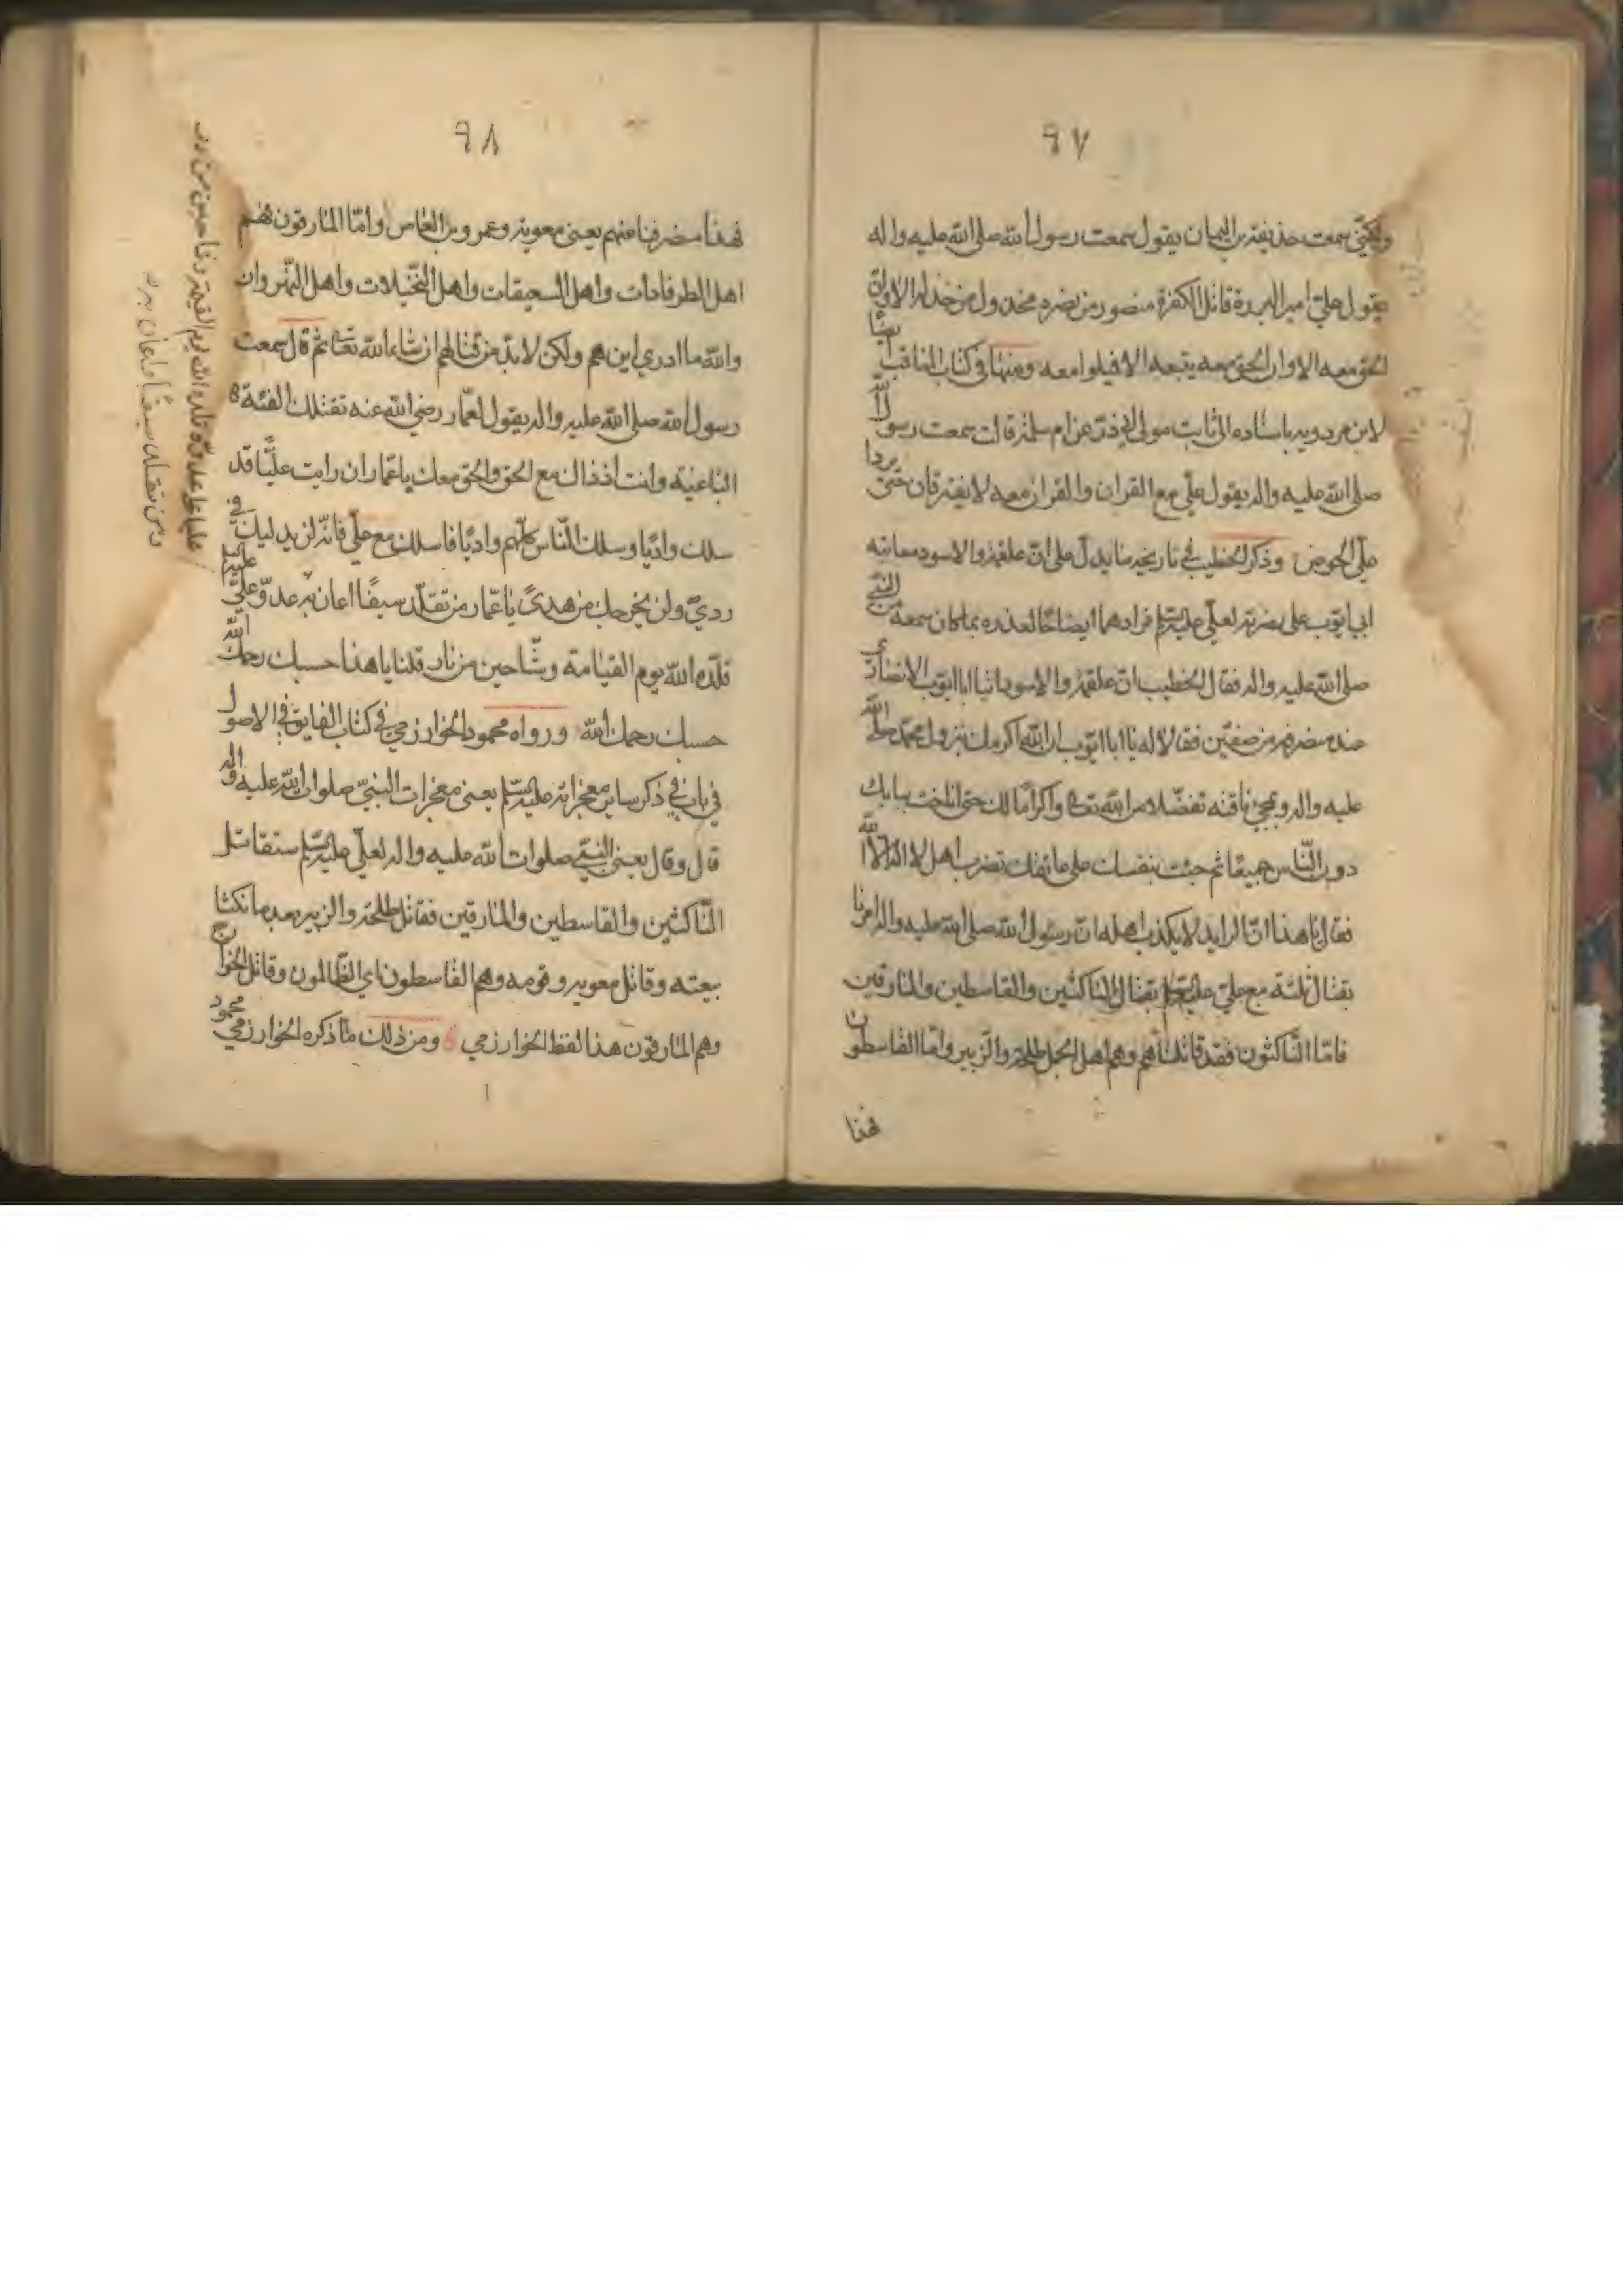 ٩٧
ولكني سمعت حذيفة بن اليمان يقول سمعت رسول الله صلى الله عليه واله
يقول علي امير البررة قاتل الكفرة منصور من نصره مخذول من خذله الا وان
الحق معه الا وان الحق معه يتبعه الا فميلوا معه ومنها في كتاب المناقب ايضا
لابن مردويه باسناده الى ثابت مولى ابي ذر عن ام سلمة قالت سمعت رسول الله
صلى الله عليه واله يقول علي مع القران والقران معه لا يفترقان حتى يردا
علي الحوض وذكر الخطيب في تاريخه ما يدل على ان علقمة والاسود معاتبه
ابي ايوب على نصرته لعلي عليه السلم فزادهما ايضاحا لعذره بما كان سمعه من النبي
صلى الله عليه واله فقال الخطيب ان علقمة والاسود اتيا ابا ايوب الانصاري
عند منصرفه من صفين فقالا له يا ابا ايوب ان الله اكرمك بنزول محمد صلى الله
عليه واله وبمجئ ناقته تفضلا من الله تعالى واكراما لك حتى اناخت ببابك
دون الناس جميعا ثم جئت بسيفك على عاتقك تضرب اهل لا اله الا الله
فقال يا هذا ان الرايد لا يكذب اهله ان رسول الله صلى الله عليه واله امرنا
بقتال ثلثة مع علي عليه السلم بقتال الناكثين والقاسطين والمارقين
فاما الناكثون فقد قاتلناهم وهم اهل الجمل طلحة والزبير واما القاسطون
فهذا
٩٨
فهذا منصرفنا عنهم يعني معوية وعمرو بن العاص واما المارقون فهم
اهل الطرفاوات واهل السعيفات واهل النخيلات واهل النهروان
والله ما ادري اين هم ولكن لا بد من قتالهم ان شاء الله تعالى ثم قال سمعت
رسول الله صلى الله عليه واله يقول لعمار رضي الله عنه تقتلك الفئة
الباغية وانت اذ ذاك مع الحق والحق معك يا عمار ان رايت عليا قد
سلك واديا وسلك الناس كلهم واديا فاسلك مع علي فانه لن يدليك في
ردي ولن يخرجك من هدى يا عمار من تقلد سيفا اعان به عدو علي عليه
قلده الله يوم القيامة وشاحين من نار قلنا يا هذا حسبك رحمك الله
حسبك رحمك الله ورواه محمود الخوارزمي في كتاب الفايق في الاصول
في باب في ذكر ساير معجزاته عليه السلم يعني معجزات النبي صلوات الله عليه واله
قال وقال يعني النبي صلوات الله عليه واله لعلي عليه السلم ستقاتل
الناكثين والقاسطين والمارقين فقاتل طلحة والزبير بعد ما نكثا
بيعته وقاتل معوية وقومه وهم القاسطون اي الظالمون وقاتل الخوارج
وهم المارقون هذا لفظ الخوارزمي ومن ذلك ما ذكره الخوارزمي محمود
ومن تقلد سيفا واعان به
عليا على عدوه قلده الله يوم القيمة وشاحين من در